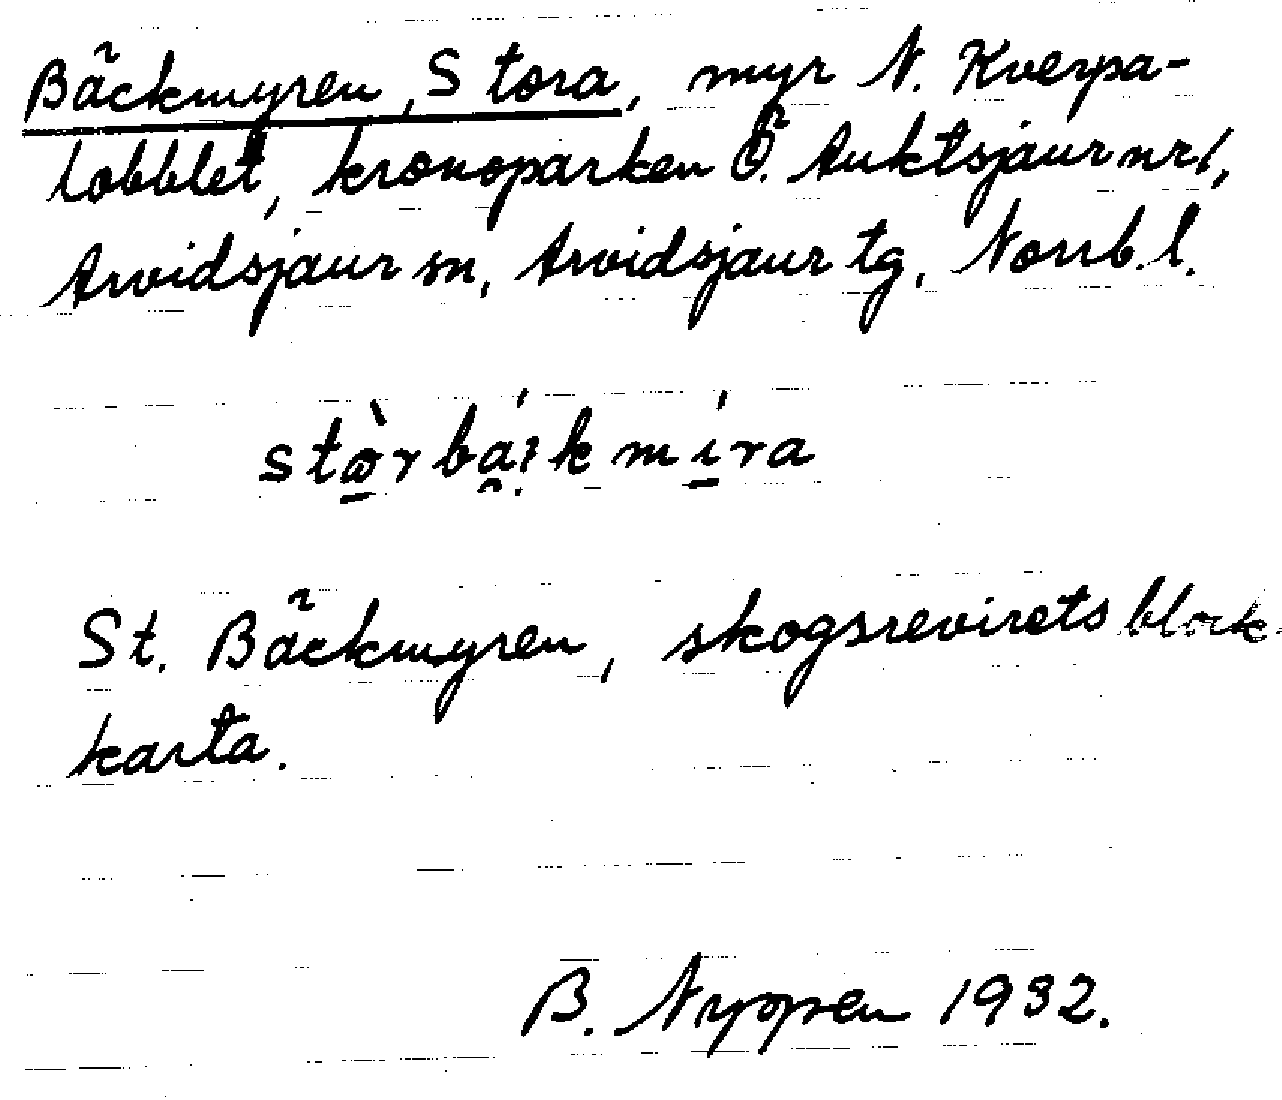 Bäckmyren, Stora, myr N. Kverpa-
lobblet, kronoparken Ö. Auktsjaur nr 1,
Arvidsjaur sn, Arvidsjaur tg, Norrb. l.
St. Bäckmyren, skogsrevirets block-
karta.
B. Nyopen 1932.